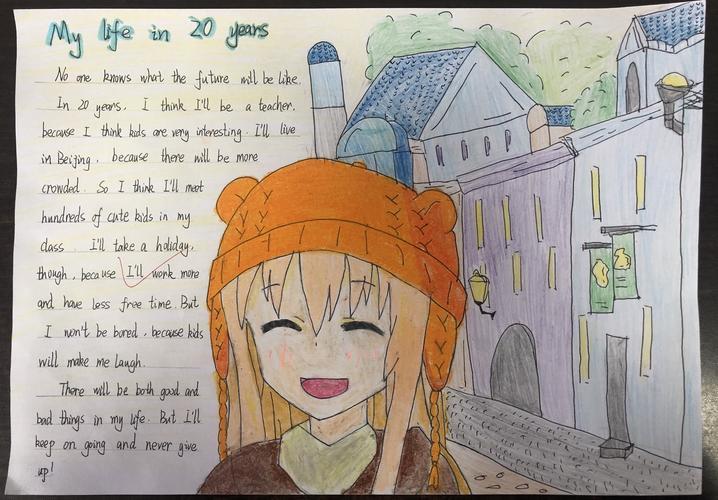 My life in 20 years
No one knows what the future will be like.
In 20 years, I think I'll be a teacher,
because I think kids are very interesting. I'll live
in Beijing, because there will be more
crowded. So I think I'll meet
hundreds of cute kids in my
class. I'll take a holiday,
though, because I'll work more
and have less free time. But
I won't be bored, because kids
will make me laugh.
There will be both good and
bad things in my life. But I'll
keep on going and never give
up!